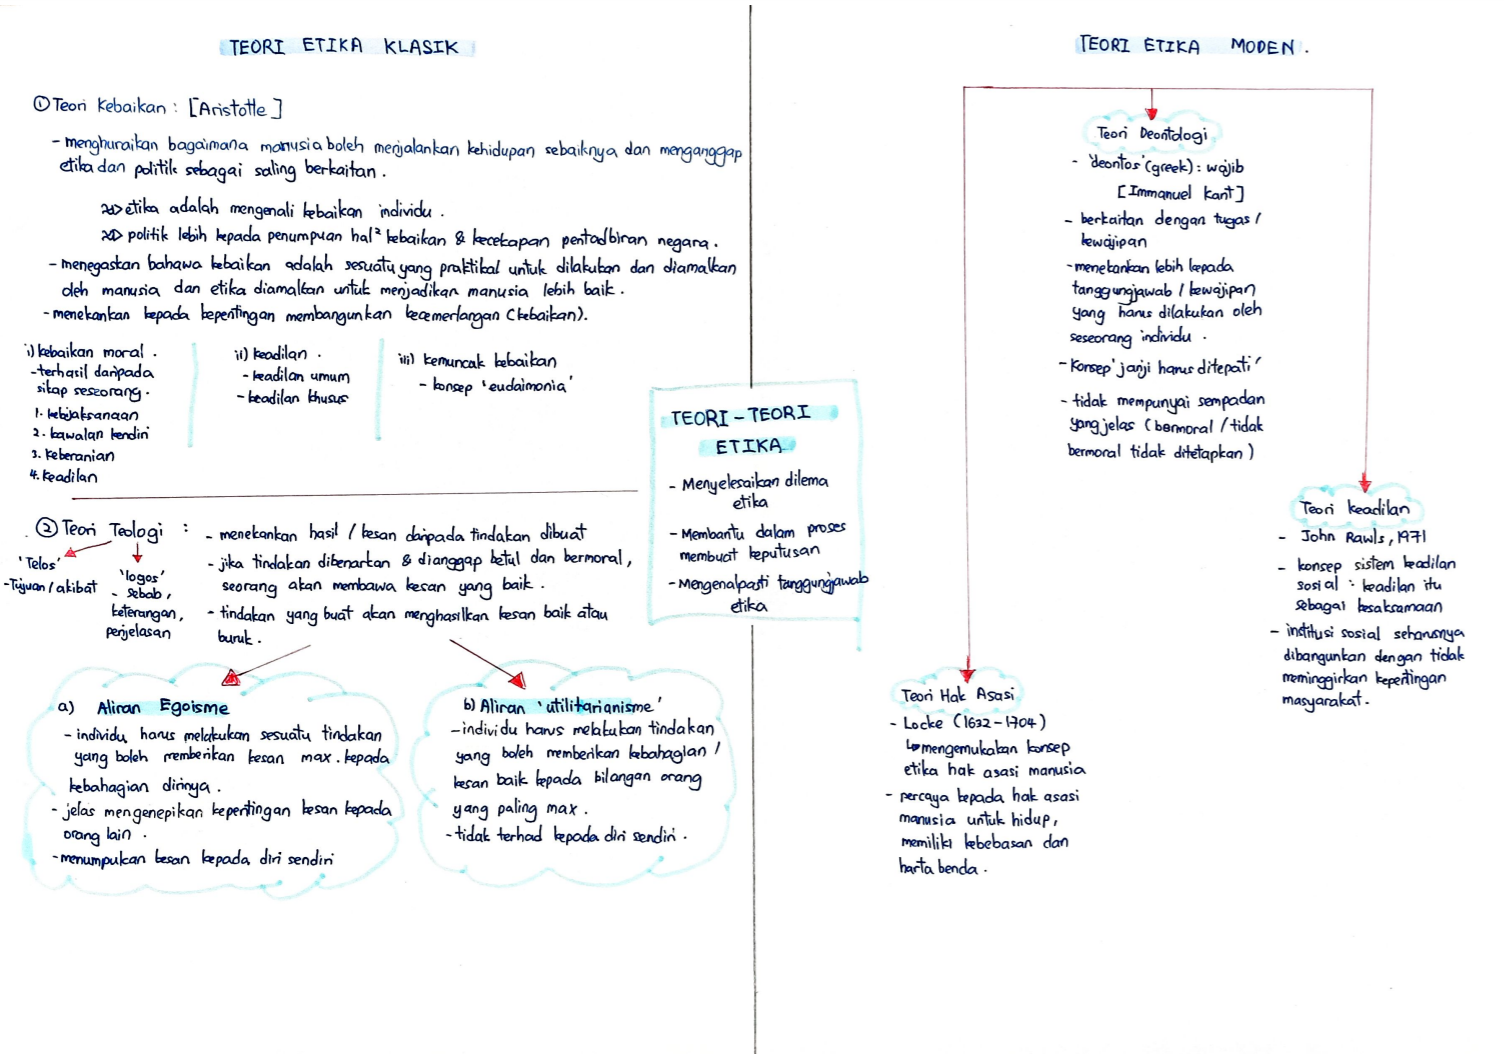 TEORI ETIKA KLASIK
① Teori Kebaikan : [Aristotle]
- menghuraikan bagaimana manusia boleh menjalankan kehidupan sebaiknya dan menganggap
etika dan politik sebagai saling berkaitan.
etika adalah mengenali kebaikan individu.
politik lebih kepada penumpuan hal² kebaikan & kecekapan pentadbiran negara.
- menegaskan bahawa kebaikan adalah sesuatu yang praktikal untuk dilakukan dan diamalkan
oleh manusia dan etika diamalkan untuk menjadikan manusia lebih baik.
- menekankan kepada kepentingan membangunkan kecemerlangan (kebaikan).
i) kebaikan moral.
- terhasil daripada
sikap seseorang.
1. kebijaksanaan
2. kawalan kendiri
3. keberanian
4. keadilan
ii) keadilan.
- keadilan umum
- keadilan khusus
iii) kemuncak kebaikan
- konsep 'eudaimonia'
② Teori Teologi :
'Telos'
- Tujuan / akibat
'logos'
- sebab,
keterangan,
penjelasan
- menekankan hasil / kesan daripada tindakan dibuat
- jika tindakan dibenarkan & dianggap betul dan bermoral,
seorang akan membawa kesan yang baik.
- tindakan yang buat akan menghasilkan kesan baik atau
buruk.
a) Aliran Egoisme
- individu harus melakukan sesuatu tindakan
yang boleh memberikan kesan max. kepada
kebahagian dirinya.
- jelas mengenepikan kepentingan kesan kepada
orang lain.
- menumpukan kesan kepada diri sendiri
b) Aliran 'utilitarianisme'
- individu harus melakukan tindakan
yang boleh memberikan kebahagian /
kesan baik kepada bilangan orang
yang paling max.
- tidak terhad kepada diri sendiri.
TEORI-TEORI
ETIKA
- Menyelesaikan dilema
etika
- Membantu dalam proses
membuat keputusan
- Mengenalpasti tanggungjawab
etika
TEORI ETIKA MODEN.
Teori Deontologi
- 'deontos' (greek) : wajib
[Immanuel Kant]
- berkaitan dengan tugas /
kewajipan
- menekankan lebih kepada
tanggungjawab / kewajipan
yang harus dilakukan oleh
seseorang individu.
- Konsep 'janji harus ditepati'
- tidak mempunyai sempadan
yang jelas (bermoral / tidak
bermoral tidak ditetapkan)
Teori Hak Asasi
- Locke (1632-1704)
↳ mengemukakan konsep
etika hak asasi manusia
- percaya kepada hak asasi
manusia untuk hidup,
memiliki kebebasan dan
harta benda.
Teori keadilan
- John Rawls, 1971
- konsep sistem keadilan
sosial : keadilan itu
sebagai kesaksamaan
- institusi sosial seharusnya
dibangunkan dengan tidak
meminggirkan kepentingan
masyarakat.